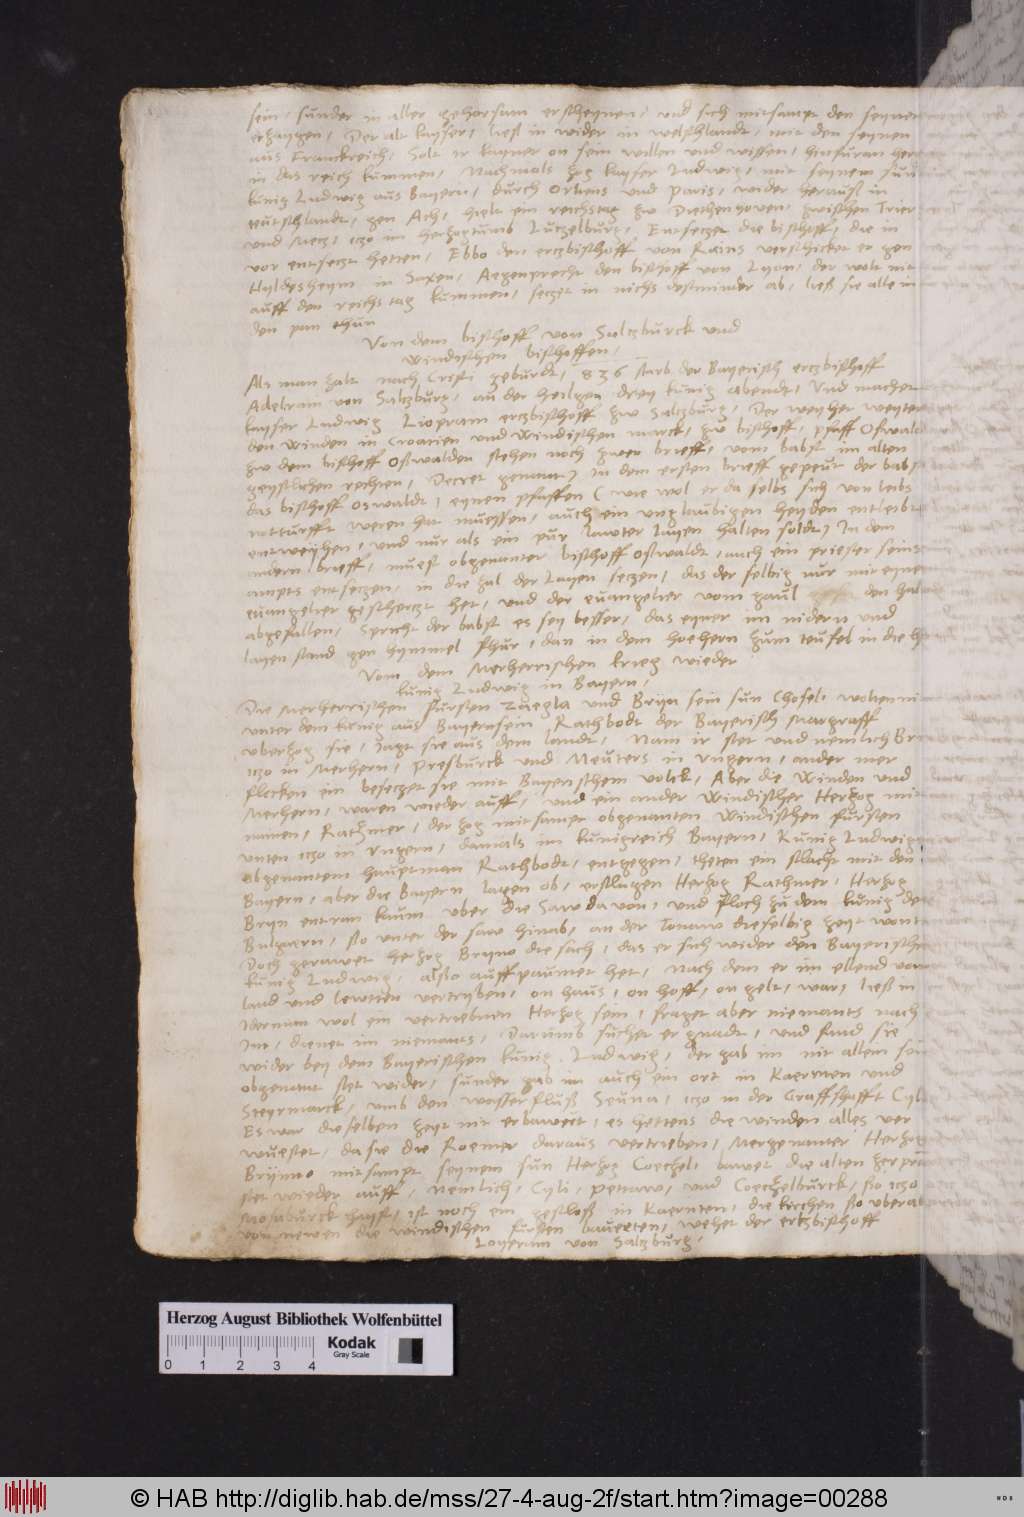 sein, sunder in aller gehorsam erscheynen, und sich mitsampt den seynen
erzaygen, Der alt kayser, ließ in wider in welschlandt, mit den seynen
aus Franckreich, Solt ir kayner on sein willen und wissen, hinfuran her
in das reich kummen, Nachmols zog kayser Ludwig, mit seynem sun
kunig Ludwig aus Bayern, durch Orliens und Paris, wider herauß in
teutschlandt, gen Ach, hielt ein reichstag zw Diethenhoven, zwischen Trier
und Mecz, iczo im herzogtumb Luczelburg, Entseczet die bischoff, die in
vor entseczt hetten, Ebbo den erczbischoff von Rains verschicket er gen
Hyldesheym in Saxen, Aegenprecht den bischoff von Lyon, der wolt nit
auff den reichstag kummen, seczet in nichs destminder ab, ließ sie alle in
den pan thun
Von dem bischoff von Salczburck und
windischen bischoffen,
Als man zalt nach Cristi geburdt, 836 starb der Bayerisch erczbischoff
Adelram von Salczburg, an der heiligen drey kunig abendt, Und machet
kayser Ludwig Liopram erczbischoff zw Salczburg, Der weyhet weyter
den Winden in Croacien und windischen marck, zw bischoff, pfaff Oswald
zw dem bischoff Oßwalden stehen noch zwen brieff, vom babst im alten
geystlichen rechten, Decret genant, In dem ersten brieff gepeut der babst
das bischoff Oswaldt, eynen pfaffen (wie wol er da selbs sich von leibs
notturfft weren hat muessen, auch ein unglaubigen heyden entleibt
entweyhen, und nur als ein pur lawter layen halten soldt) In dem
andern brieff, muest obgenanter bischoff Oßwaldt, auch ein priester seins
ampts entseczen, in die zal der Layen seczen, das der selbig nur mit eynem
euangelier gescherczt het, und der euangelier vom gaul den hals
abgefallen, Spricht der babst es sey besser, das eyner im nidern und
layen stand gen hymmel fhur, dan in dem hoehern zum teufel in die
Vom dem Merherrischen krieg wieder
kunig Ludwig in Bayern,
Die Merherrischen fursten und Bryn sein sun Chosel, wolten
unter dem kunig aus Bayern sein Rathbodt der Bayerisch Margraff
uberzog sie, Jagt sie aus dem landt, Nam ir stet und nemlich
iczo in Merhern, Presburck und Neuters in Ungern, ander mer
flecken ein beseczet sie mit Bayerischem volck, Aber die Winden und
Merhern, waren wieder auff, und ein ander Windischer Herzog mit
namen, Rathmer, der zog mitsampt obgenanten Windischen fursten
unten iczo in Ungern, damals im kunigreich Bayern, Kunig Ludwigs
obgenantem hauptman Rathbodt, entgegen, theten ein schlacht mit den
Bayern, aber die Bayern lagen ob, erschlugen Herzog Rathmer, Herzog
Bryn entran kaum uber die Saw davon, und floch zu dem kunig der
Bulgarn, so unter der saw hinab, an der Tonaw dieselbig zeyt wont
Doch gerawet herzog Brynno die sach, das er sich wider den Bayerischen
kunig Ludwig, also auffpaumet het, Nach dem er im ellend von
land und lewtten vertryben, on haus, on hoff, on gelt, war, ließ in
iderman wol ein vertriebnen Herzog sein, fraget aber niemants nach
im, dienet im niemants, Darumb suchet er gnadt, und fand sie
wider bey dem Bayerischen kunig Ludwig, der gab im nit allein sein
obgenant stet wider, sunder gab im auch ein ort in Kaernten und
Steyrmarck, umb den wasserfluß Seuna, iczo in der Graffschafft Cyli
Es war dieselben zeyt nit erbawett, es hettens die winden alles ver
wuestet, da sie die Roemer daraus vertrieben, Mergenanter Herzog
Brynno mitsampt seynem sun Herzog Coechel, bawet die alten
stet wieder auff, nemlich, Cyli, Petaw, und Coechelburck, so iczo
Mosaburck hayst, ist noch ein geschloß in Kaernten, die kirchen so uberal
von newen die windischen fursten baueten, weyhet der ertzbischoff
von Salczburg,
Herzog August Bibliothek Wolfenbüttel
Kodak
Gray Scale
0 1 2 3 4
© HAB http://diglib.hab.de/mss/27-4-aug-2f/start.htm?image=00288